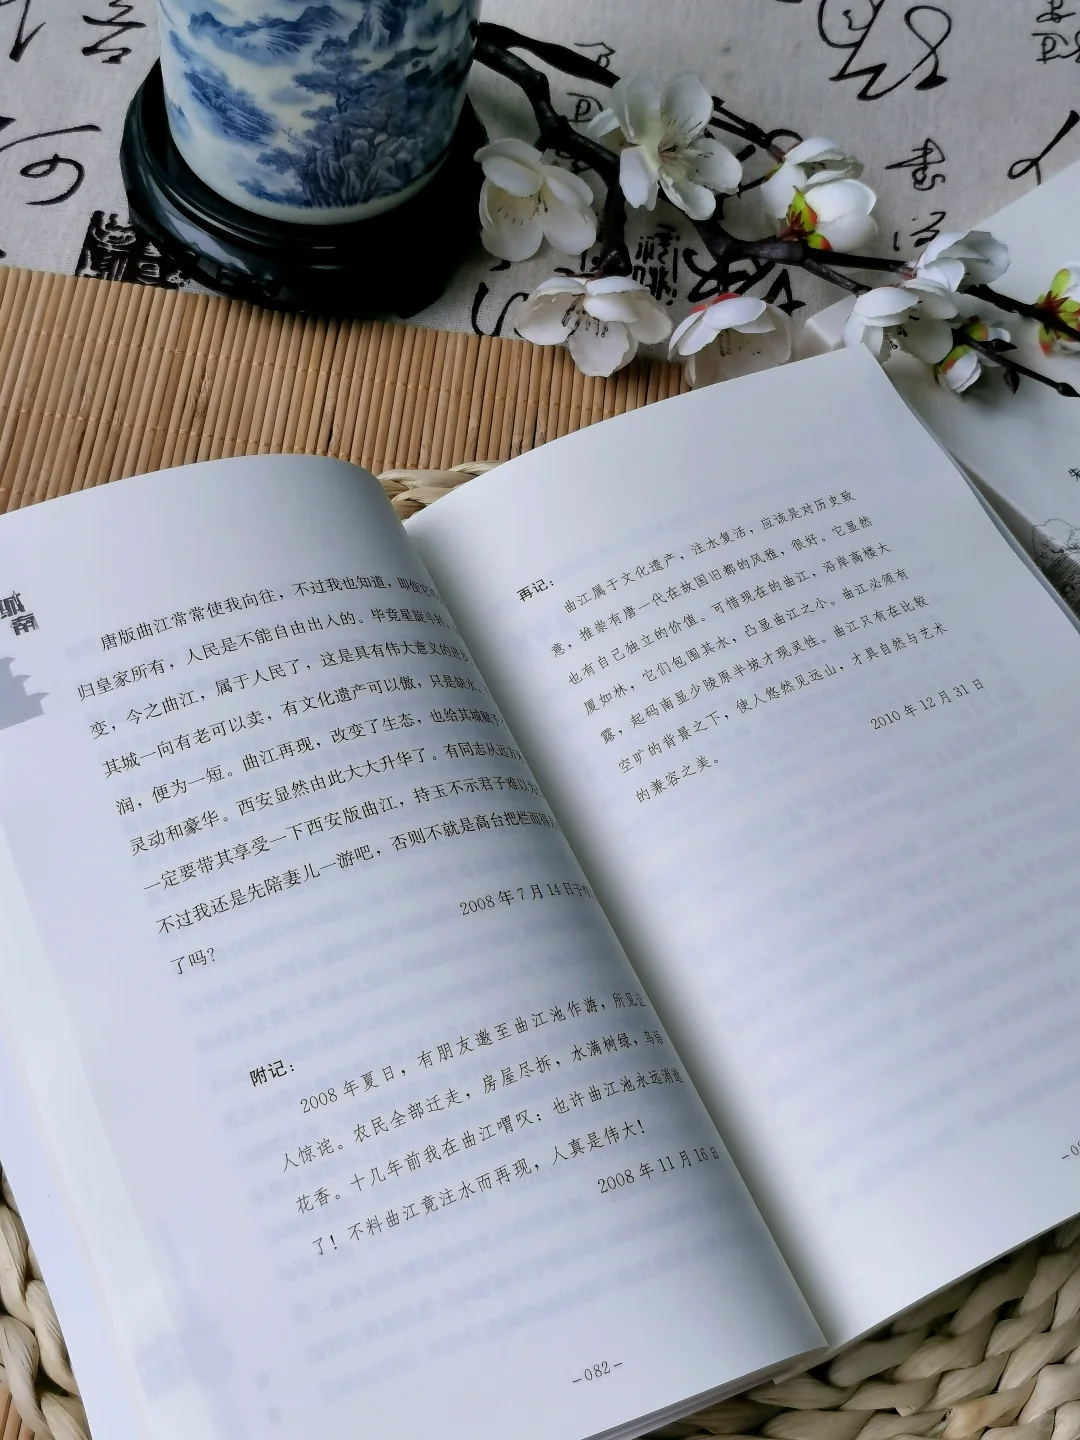 唐版曲江常常使我向往，不过我也知道，即使它
归皇家所有，人民是不能自由出入的。毕竟星旋斗转，
变，今之曲江，属于人民了，这是具有伟大意义的进步
其城一向有老可以卖，有文化遗产可以傲，只是缺水，
润，便为一短。曲江再现，改变了生态，也给其城赋予
灵动和豪华。西安显然由此大大升华了。有同志从远方
一定要带其享受一下西安版曲江，持玉不示君子难以为
不过我还是先陪妻儿一游吧，否则不就是高台把栏而
了吗？
2008 年 7 月 14 日于
附记：
2008 年夏日，有朋友邀至曲江池作游，所见让
人惊诧。农民全部迁走，房屋尽拆，水满树绿，鸟语
花香。十几年前我在曲江喟叹：也许曲江池永远消逝
了！不料曲江竟注水而再现，人真是伟大！
2008 年 11 月 16 日
-082-
再记：
曲江属于文化遗产，注水复活，应该是对历史致
意，推崇有唐一代在故国旧都的风雅，很好。它显然
也有自己独立的价值。可惜现在的曲江，沿岸高楼大
厦如林，它们包围其水，凸显曲江之小。曲江必须有
露，起码南显少陵原半坡才现灵性。曲江只有在比较
空旷的背景之下，使人悠然见远山，才具自然与艺术
的兼容之美。
2010 年 12 月 31 日